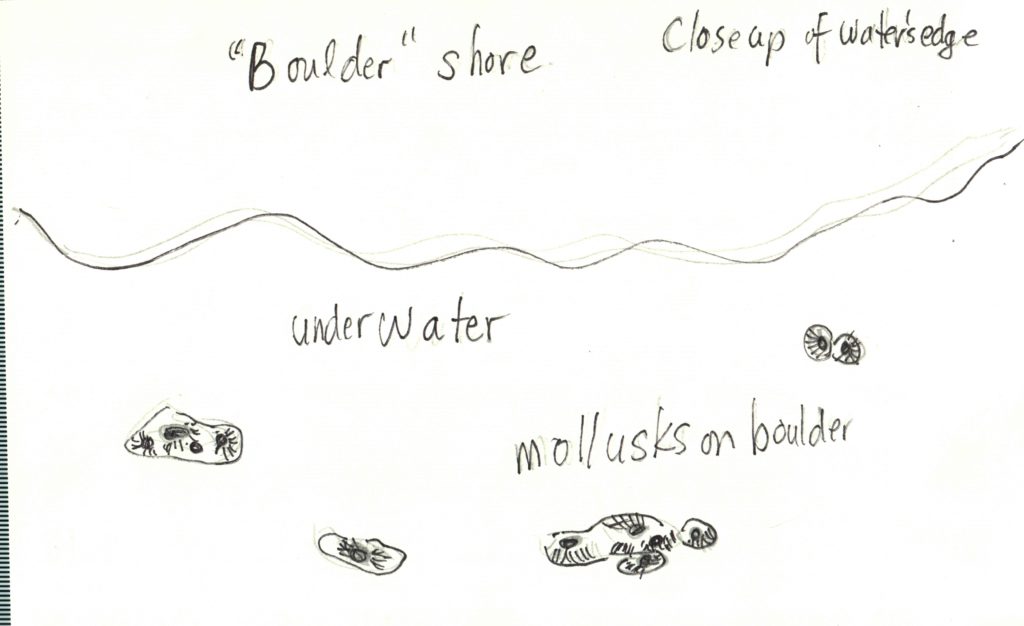 "Boulder" shore
Closeup of water's edge
underwater
mollusks on boulder